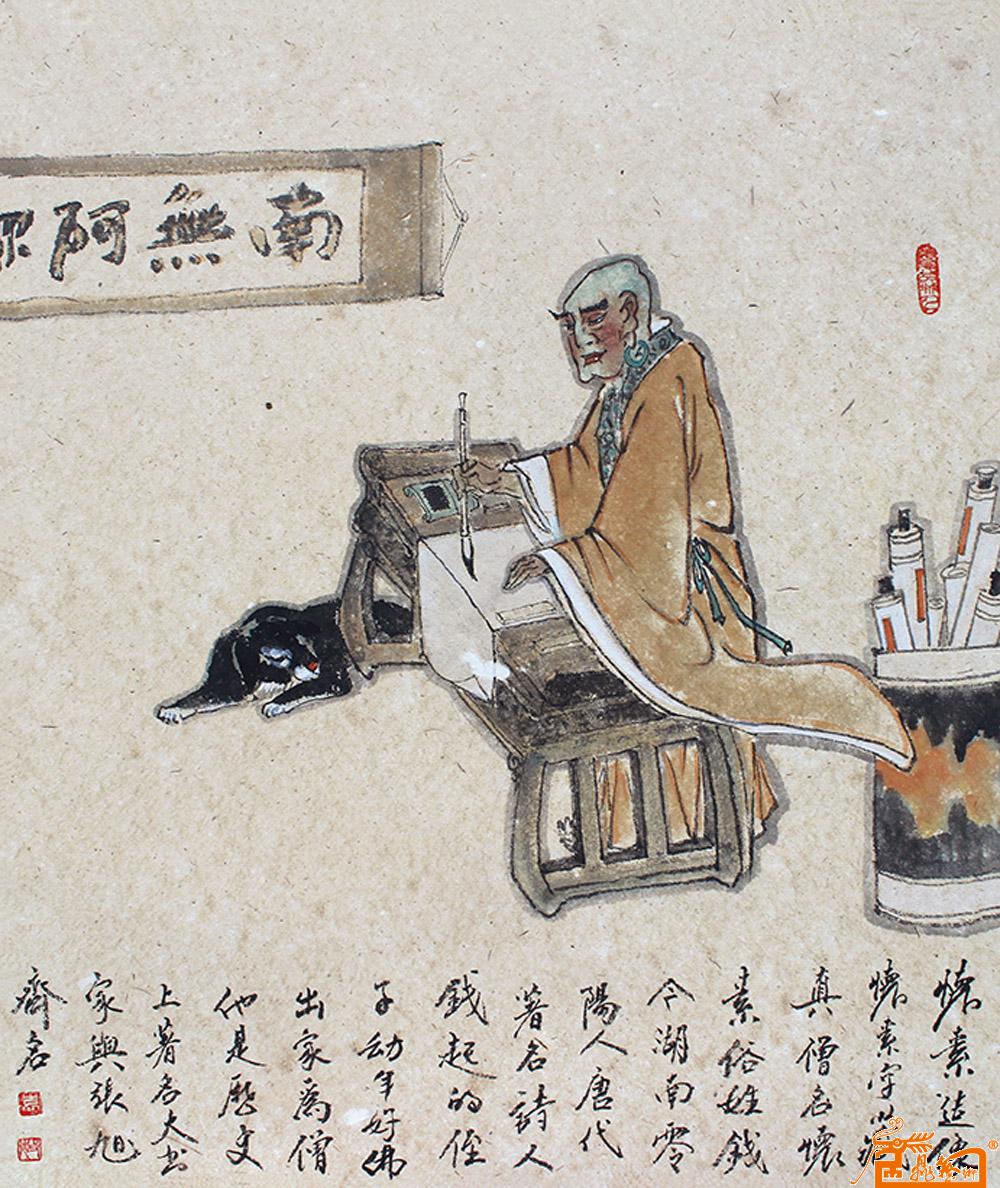 南無阿
懷素造像
懷素字以
真僧名懷
素俗姓錢
今湖南零
陽人唐代
著名詩人
錢起的侄
子幼年好佛
出家爲僧
他是歷史
上著名大书
家與張旭
齊名